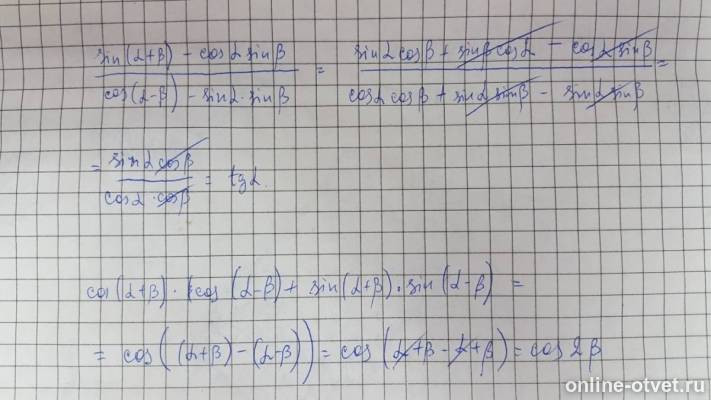 sin(α+β) - cosα sinβ / cos(α-β) - sinα·sinβ = sinα cosβ + sinβ cosα - cosα sinβ / cosα cosβ + sinα sinβ - sinα sinβ =
= sinα cosβ / cosα·cosβ = tgα.
cos(α+β)·cos(α-β) + sin(α+β)·sin(α-β) =
= cos((α+β) - (α-β)) = cos(α+β-α+β) = cos2β
online-otvet.ru